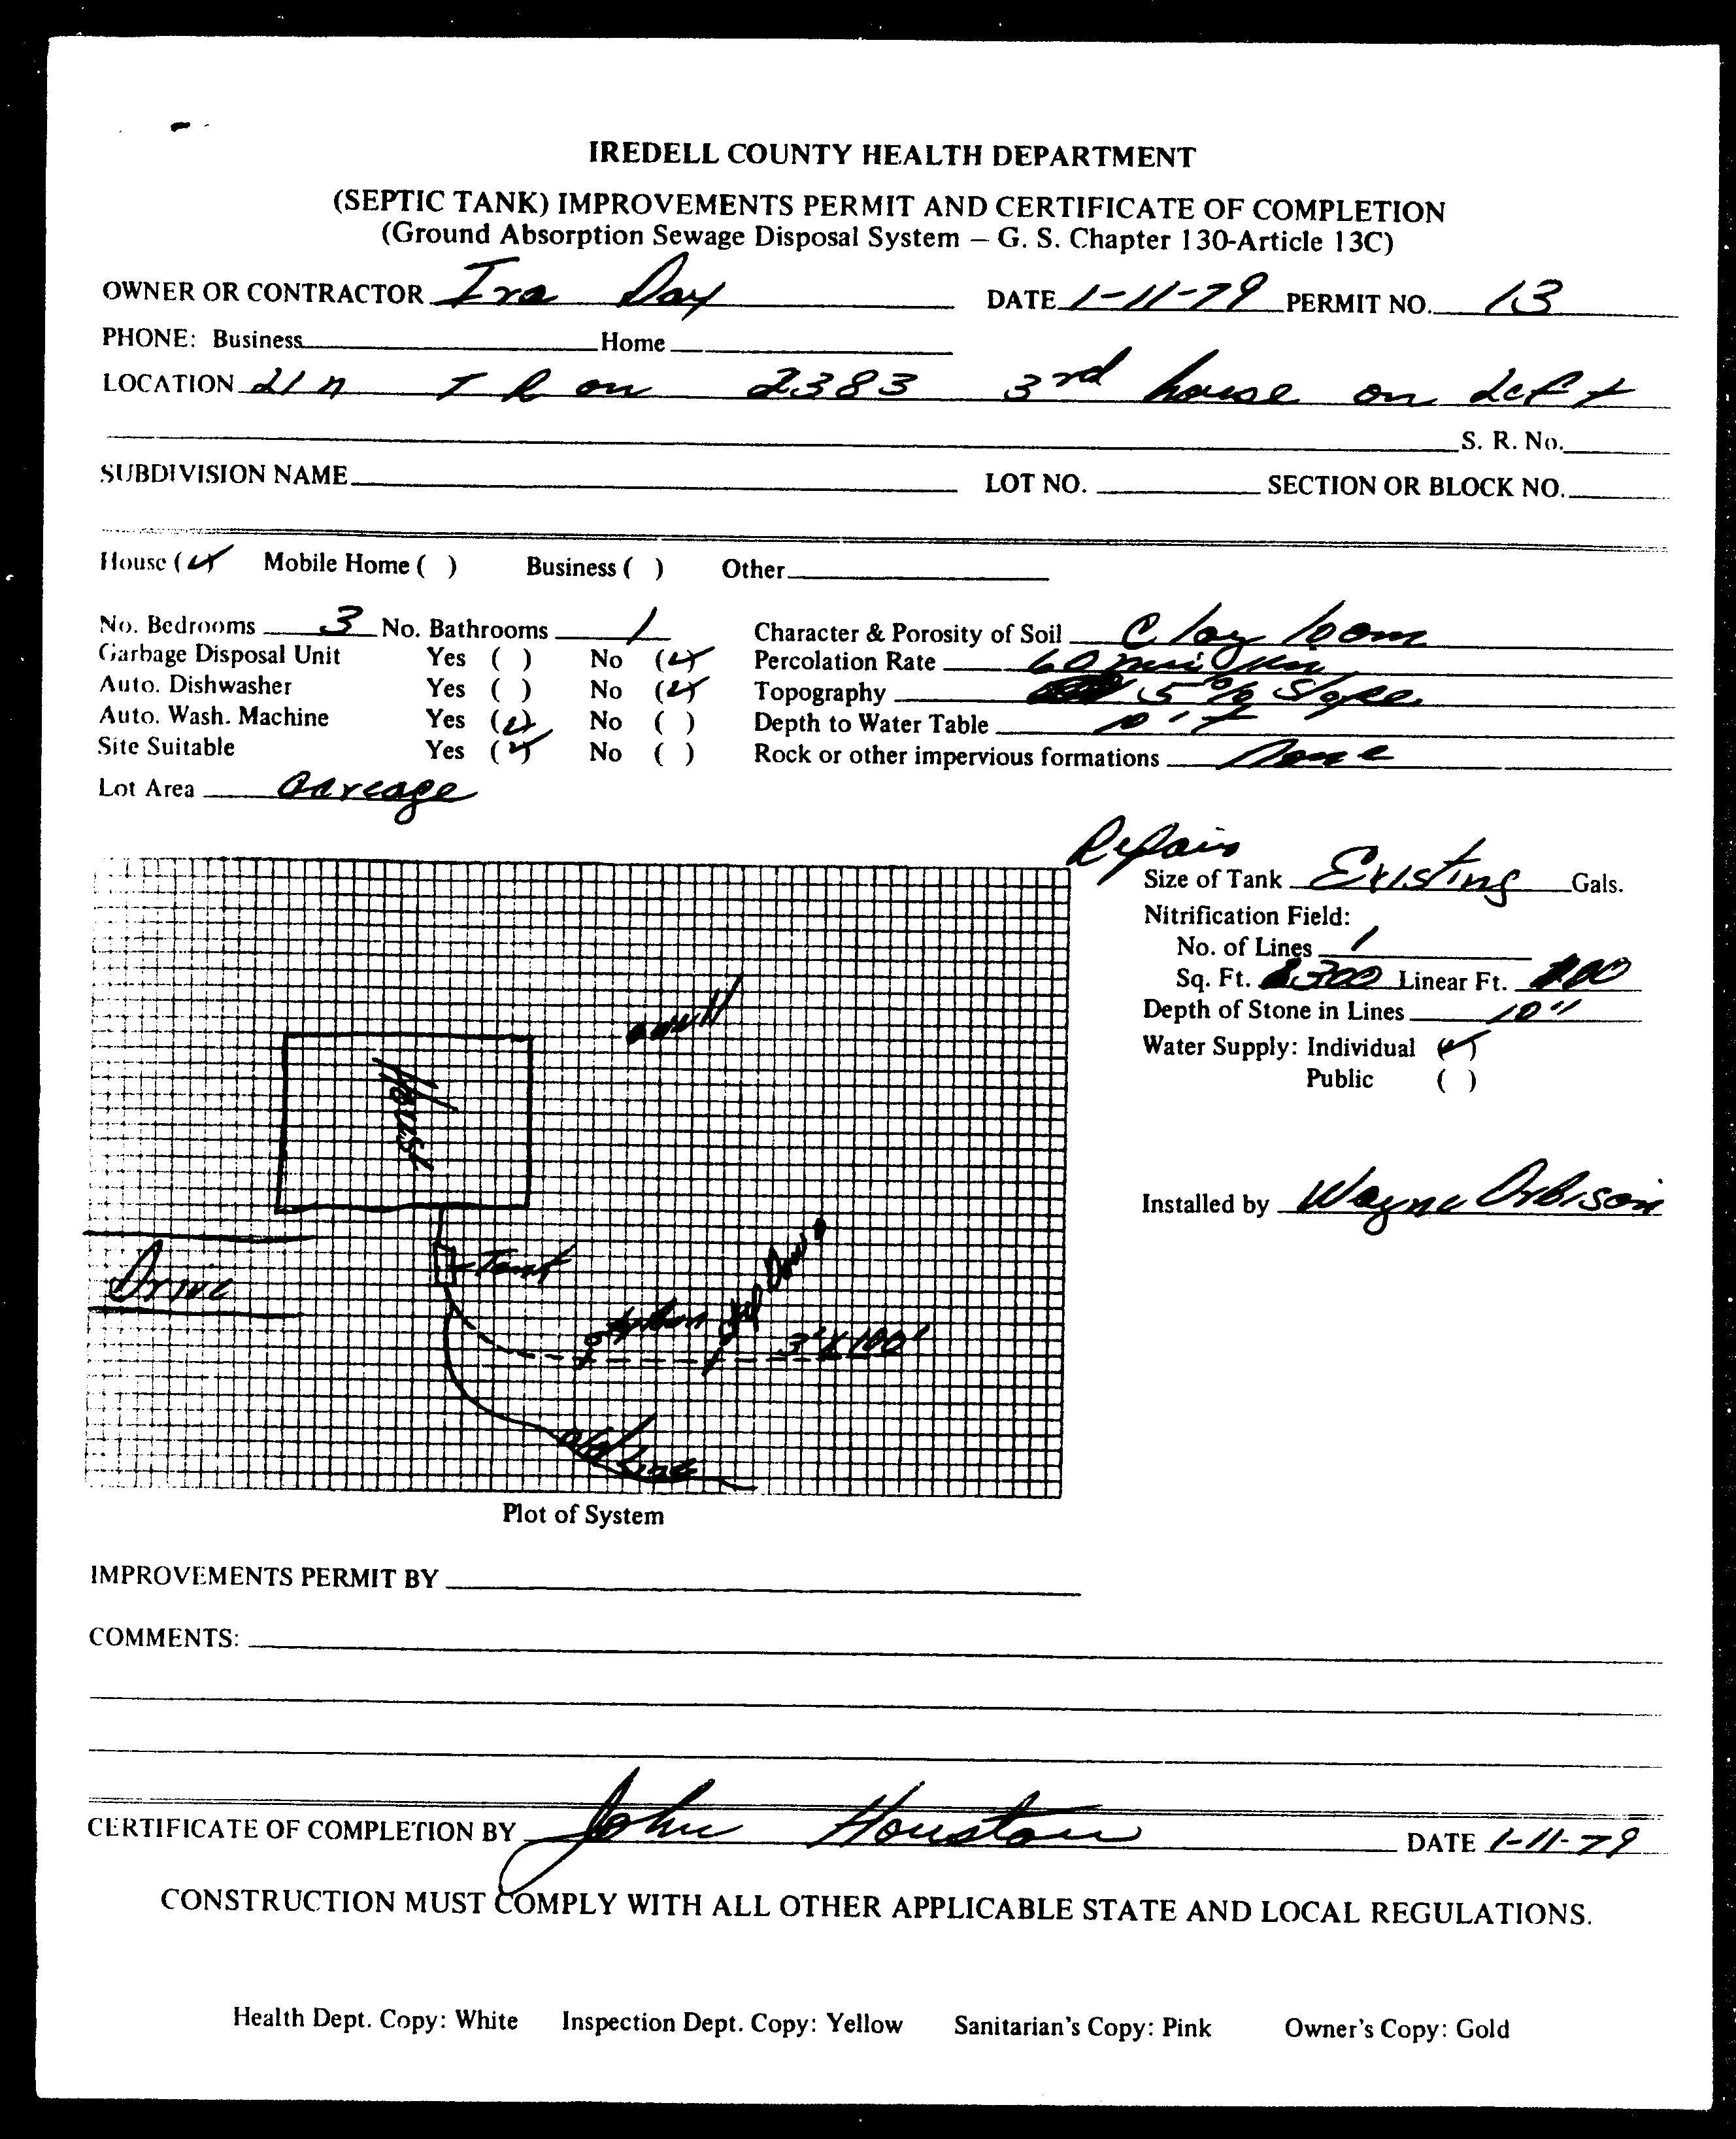 IREDELL COUNTY HEALTH DEPARTMENT
(SEPTIC TANK) IMPROVEMENTS PERMIT AND CERTIFICATE OF COMPLETION
(Ground Absorption Sewage Disposal System — G. S. Chapter 130-Article 13C)
OWNER OR CONTRACTOR Ira Day DATE 1-11-79 PERMIT NO. 13
PHONE: Business Home
LOCATION 21 n T R on 2383 3rd house on left
S. R. No.
SUBDIVISION NAME LOT NO. SECTION OR BLOCK NO.
House (✓) Mobile Home ( ) Business ( ) Other
No. Bedrooms 3 No. Bathrooms 1 Character & Porosity of Soil Clay loam
Garbage Disposal Unit Yes ( ) No (✓) Percolation Rate 60 min
Auto. Dishwasher Yes ( ) No (✓) Topography 5% Slope
Auto. Wash. Machine Yes (✓) No ( ) Depth to Water Table 10'+
Site Suitable Yes (✓) No ( ) Rock or other impervious formations None
Lot Area Acreage
Repair
Size of Tank Existing Gals.
Nitrification Field:
No. of Lines 1
Sq. Ft. 300 Linear Ft. 100
Depth of Stone in Lines 10"
Water Supply: Individual (✓)
Public ( )
Installed by Wayne Orbison
House
Drive
Tank
Step Down
3' X 100'
Old Line
Plot of System
IMPROVEMENTS PERMIT BY
COMMENTS:
CERTIFICATE OF COMPLETION BY John Houston DATE 1-11-79
CONSTRUCTION MUST COMPLY WITH ALL OTHER APPLICABLE STATE AND LOCAL REGULATIONS.
Health Dept. Copy: White Inspection Dept. Copy: Yellow Sanitarian's Copy: Pink Owner's Copy: Gold